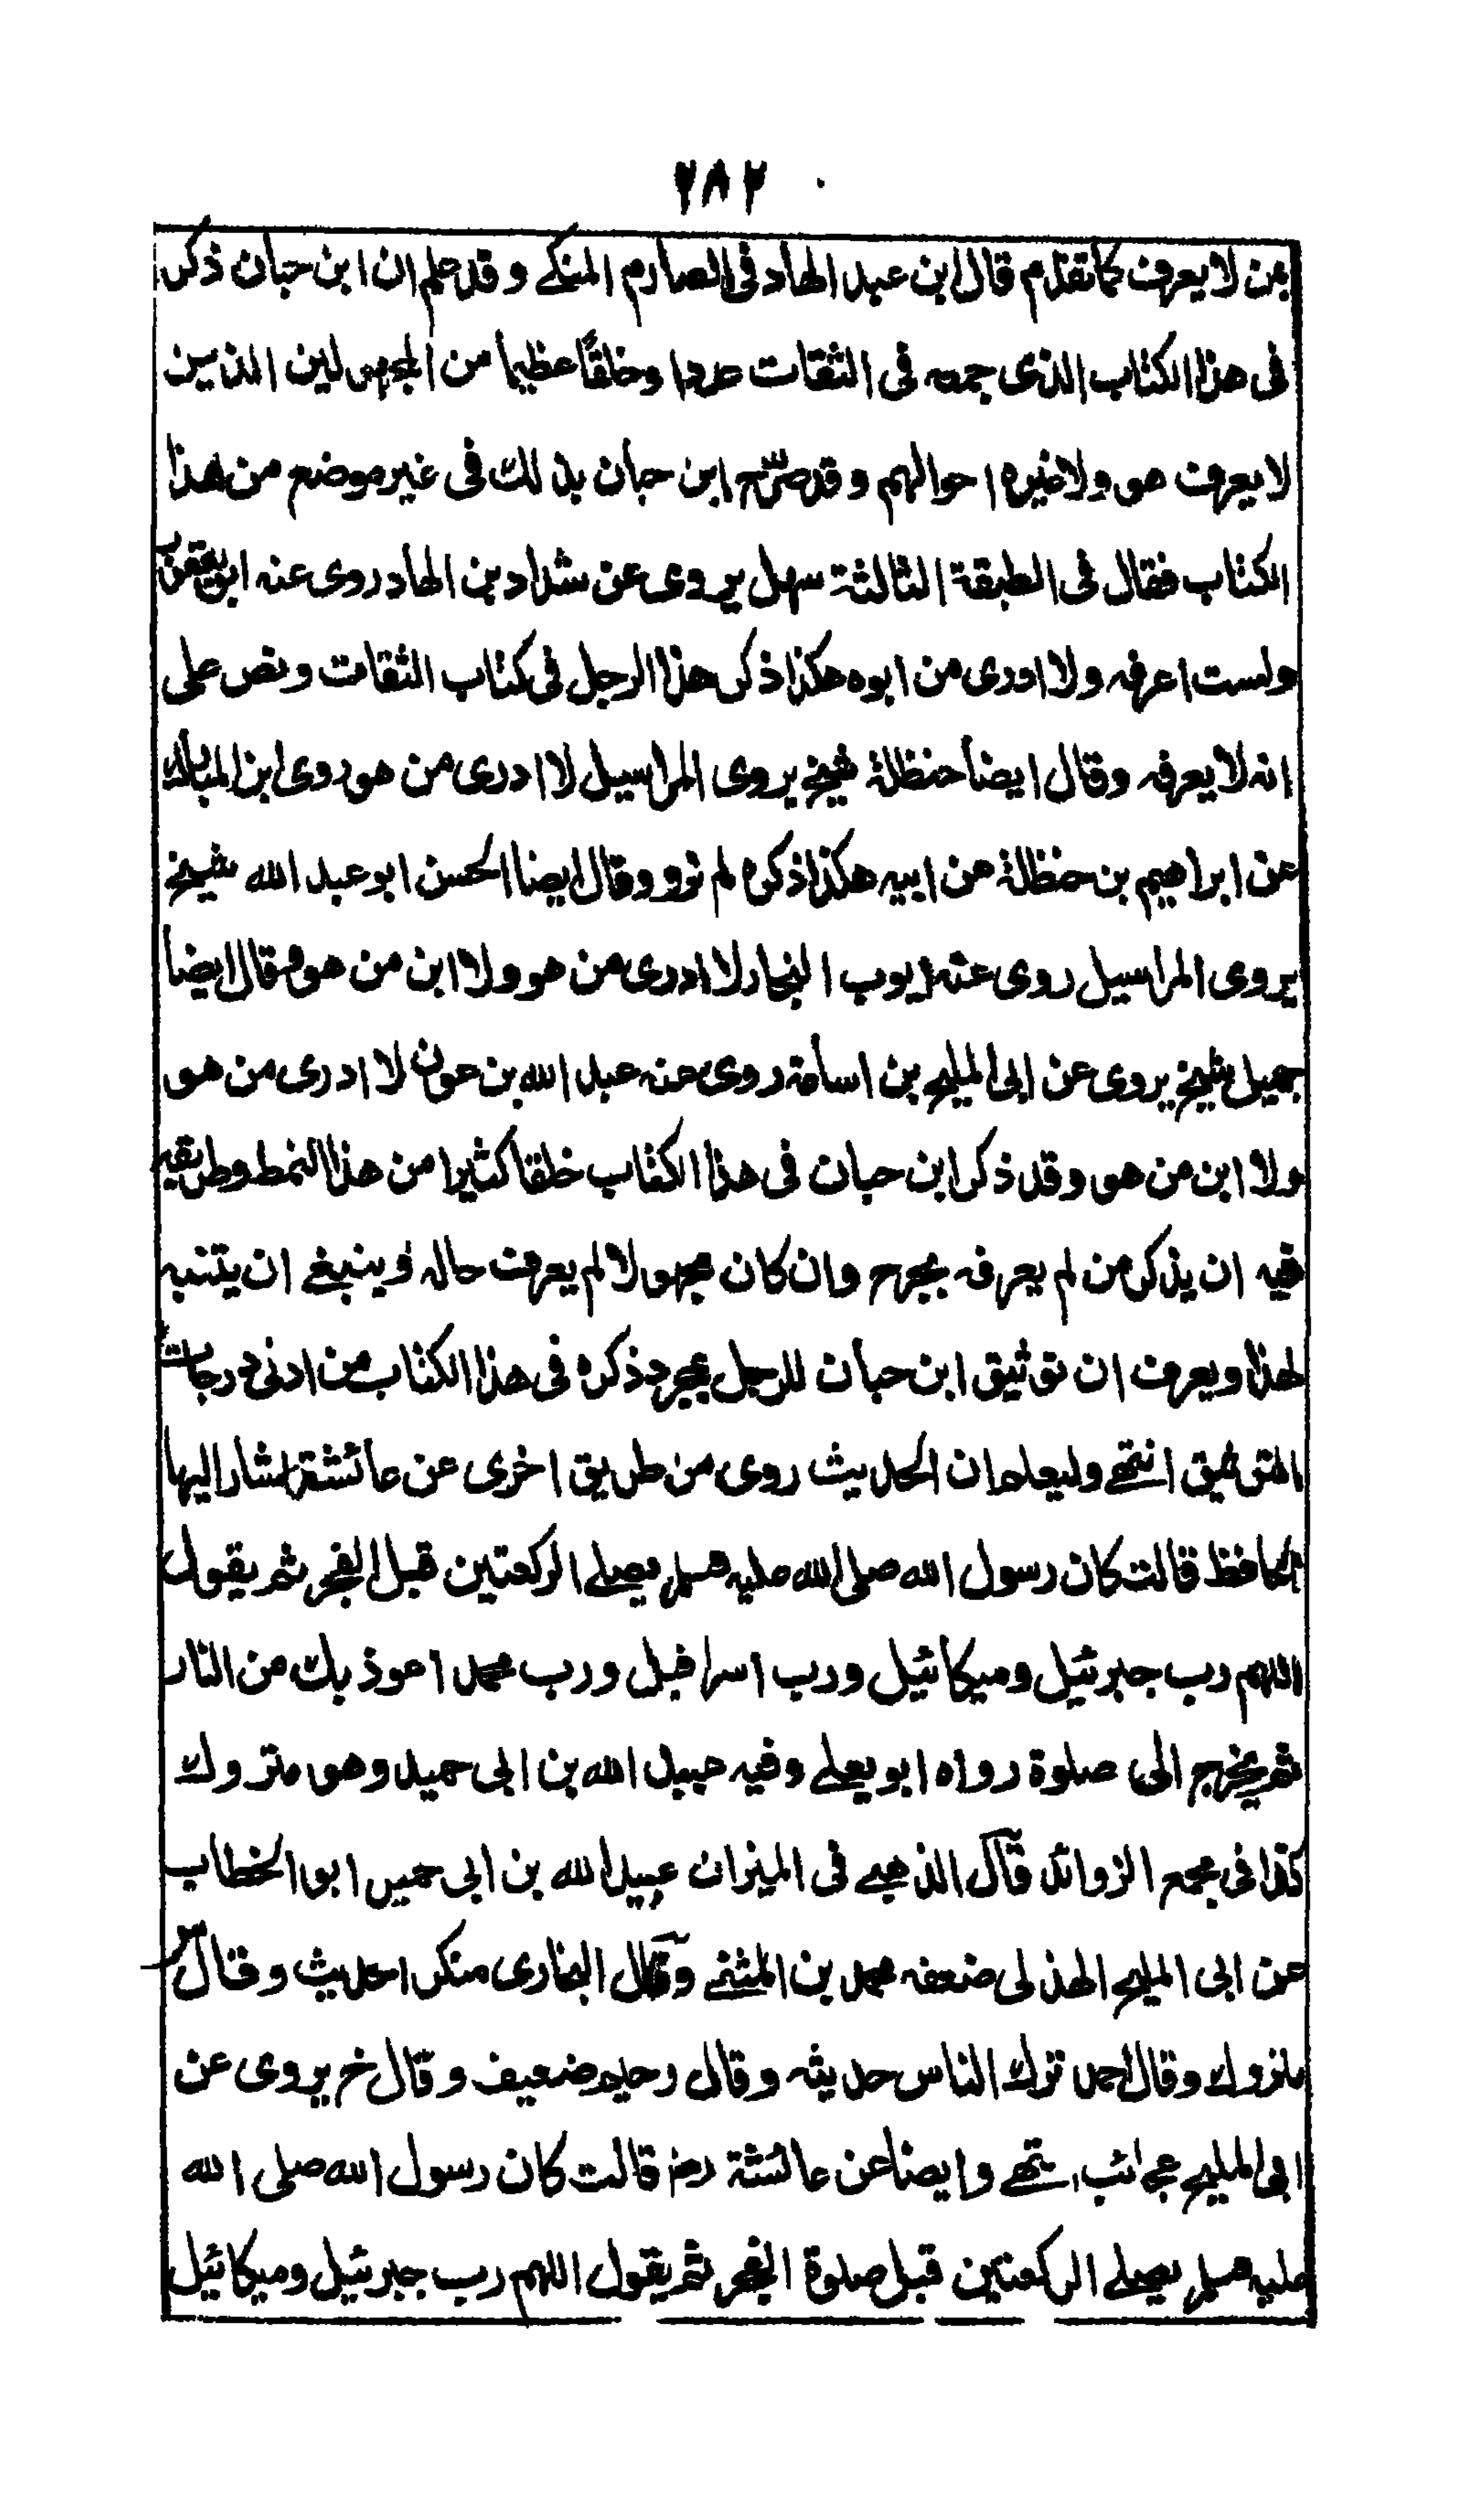 ٢٨٢
بمن لا يعرف كما تقدم قال ابن عبد الهاد فى الصارم المنكے وقد علم ان ابن حبان ذكر
فى هذا الكتاب الذى جمعه فى الثقات عددا وخلقًا عظيما من المجهولين الذين
لا يعرف هو ولا غيره احوالهم وقد صرّح ابن حبان بذلك فى غير موضع من هذا
الكتاب فقال فى الطبقة الثالثة سهل يروى عن شداد بن الهاد روى عنه ابو يعفور
ولست اعرفه ولا ادرى من ابوه هكذا ذكر هذا الرجل فى كتاب الثقات ونص على
انه لا يعرفه وقال ايضا حنظلة شيخ يروى المراسيل لا ادرى من هو روى ابن المبارك
عن ابراهيم بن حنظلة عن ابيه هكذا ذكره لم نزد وقال ايضا الحسن ابو عبد الله شيخ
يروى المراسيل روى عنه ايوب النجار لا ادرى من هو ولا ابن من هو وقال ايضا
جميل شيخ يروى عن ابى المليح بن اسامة روى عنه عبد الله بن عون لا ادرى من هو
ولا ابن من هو وقد ذكر ابن حبان فى هذا الكتاب خلقا كثيرا من هذا النمط وطريقه
فيه ان يذكر من لم يعرفه بجرح وان كان مجهولا لم يعرف حاله وينبغے ان يتنبه
لهذا ويعرف ان توثيق ابن حبان للرجل بمجرد ذكره فى هذا الكتاب من ادنى درجات
التوثيق انتهے وليعلم ان الحديث روى من طريق اخرى عن عائشة المشار اليها
الحافظ قالت كان رسول الله صلى الله عليه وسلم يصلے الركعتين قبل الفجر ثم يقول
اللهم رب جبرئيل وميكائيل ورب اسرافيل ورب محمد اعوذ بك من النار
ثم يخرج الى صلوة رواه ابو يعلے وفيه عبيد الله بن ابى حميد وهو متروك
كذا فى مجمع الزوائد قال الذهبے فى الميزان عبيد الله بن ابى حميد ابو الخطاب
عن ابى المليح الهذلى ضعفه محمد بن المثنے وقال البخارى منكر الحديث وقال
متروك وقال احمد ترك الناس حديثه وقال دحيم ضعيف وقال خ يروى عن
ابى المليح عجائب انتهے وايضا عن عائشة رض قالت كان رسول الله صلى الله
عليه وسلم يصلے الركعتين قبل صلوة الفجر ثم يقول اللهم رب جبرئيل وميكائيل